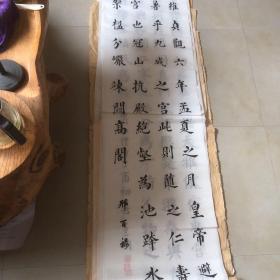 維貞觀六年孟夏之月皇帝避
暑乎九成之宮此則隨之仁壽
宮也冠山抗殿絕壑為池跨水
架楹分巖竦闕高閣